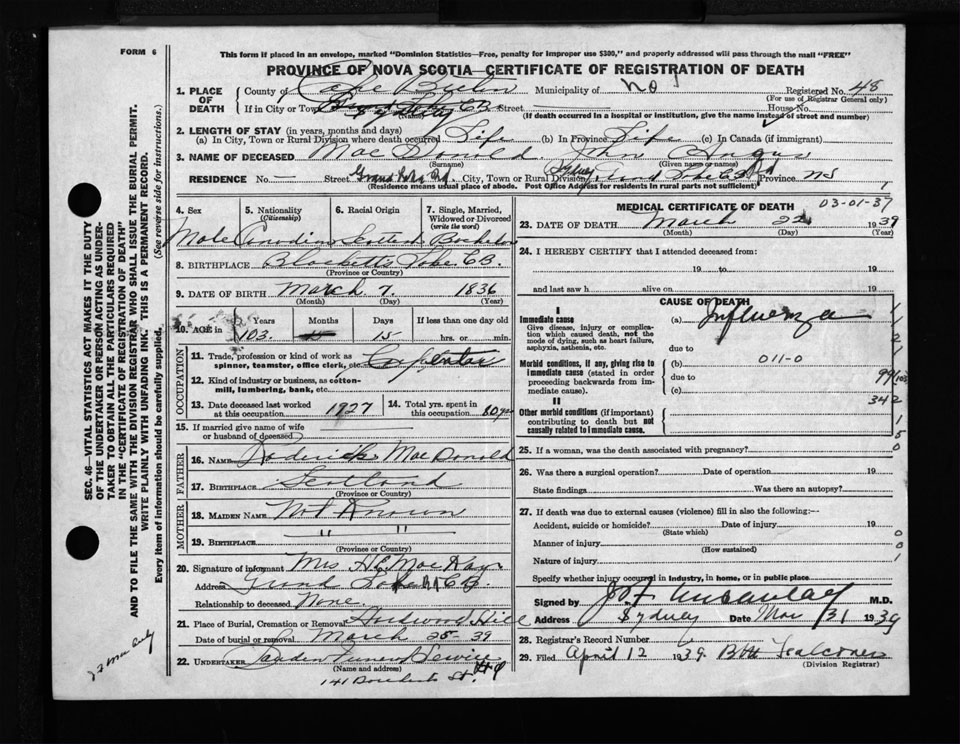 FORM 6
This form if placed in an envelope, marked "Dominion Statistics—Free, penalty for improper use $300," and properly addressed will pass through the mail "FREE"
PROVINCE OF NOVA SCOTIA—CERTIFICATE OF REGISTRATION OF DEATH
SEC. 46—VITAL STATISTICS ACT MAKES IT THE DUTY
OF THE UNDERTAKER OR PERSON ACTING AS UNDER-
TAKER TO OBTAIN ALL THE PARTICULARS REQUIRED
IN THE "CERTIFICATE OF REGISTRATION OF DEATH"
AND TO FILE THE SAME WITH THE DIVISION REGISTRAR WHO SHALL ISSUE THE BURIAL PERMIT.
WRITE PLAINLY WITH UNFADING INK. THIS IS A PERMANENT RECORD.
Every item of information should be carefully supplied. (See reverse side for instructions.)
1. PLACE OF DEATH County of Cape Breton Municipality of No 1 Registered No. 48
(For use of Registrar General only)
If in City or Town C.B. Street House No.
(If death occurred in a hospital or institution, give the name instead of street and number)
2. LENGTH OF STAY (in years, months and days)
(a) In City, Town or Rural Division where death occurred Life (b) In Province Life (c) In Canada (if immigrant)
3. NAME OF DECEASED Mac Donald John Angus
(Surname) (Given name or names)
RESIDENCE No. — Street Grand Lake Rd. City, Town or Rural Division Grand Lake Rd Province NS
(Residence means usual place of abode. Post Office Address for residents in rural parts not sufficient)
4. Sex 5. Nationality (Citizenship) 6. Racial Origin 7. Single, Married, Widowed or Divorced (write the word)
Male Canadian Scotch Bachelor
8. BIRTHPLACE Blacketts Lake C.B.
(Province or Country)
9. DATE OF BIRTH March 7. 1836
(Month) (Day) (Year)
10. AGE in Years Months Days If less than one day old
103. 15 hrs. or min.
OCCUPATION
11. Trade, profession or kind of work as spinner, teamster, office clerk, etc. Carpenter
12. Kind of industry or business, as cotton-mill, lumbering, bank, etc.
13. Date deceased last worked at this occupation 1927 14. Total yrs. spent in this occupation 80 yrs
15. If married give name of wife or husband of deceased
FATHER
16. NAME Roderick Mac Donald
17. BIRTHPLACE Scotland
(Province or Country)
MOTHER
18. MAIDEN NAME Not Known
19. BIRTHPLACE " "
(Province or Country)
20. Signature of informant Mrs H. Mac Kay
Address Grand Lake Rd C.B.
Relationship to deceased None.
21. Place of Burial, Cremation or Removal Hardwood Hill
Date of burial or removal March 25-39
22. UNDERTAKER Funeral Service
(Name and address)
141 Dorchester St.
MEDICAL CERTIFICATE OF DEATH 03-01-37
23. DATE OF DEATH March 22 1939
(Month) (Day) (Year)
24. I HEREBY CERTIFY that I attended deceased from:
19 to 19
and last saw h alive on 19
CAUSE OF DEATH
I
Immediate cause (a) Influenza
Give disease, injury or complication which caused death, not the mode of dying, such as heart failure, asphyxia, asthenia, etc.
due to
Morbid conditions, if any, giving rise to immediate cause (stated in order proceeding backwards from immediate cause).
(b) 011-0
due to
(c)
342
II
Other morbid conditions (if important) contributing to death but not causally related to immediate cause.
25. If a woman, was the death associated with pregnancy?
26. Was there a surgical operation? Date of operation 19
State findings Was there an autopsy?
27. If death was due to external causes (violence) fill in also the following:—
Accident, suicide or homicide? Date of injury 19
(State which)
Manner of injury
(How sustained)
Nature of injury
Specify whether injury occurred in industry, in home, or in public place
Signed by M.D.
Address Sydney Date Mar 31 1939
28. Registrar's Record Number
29. Filed April 12 1939 Falconer
(Division Registrar)